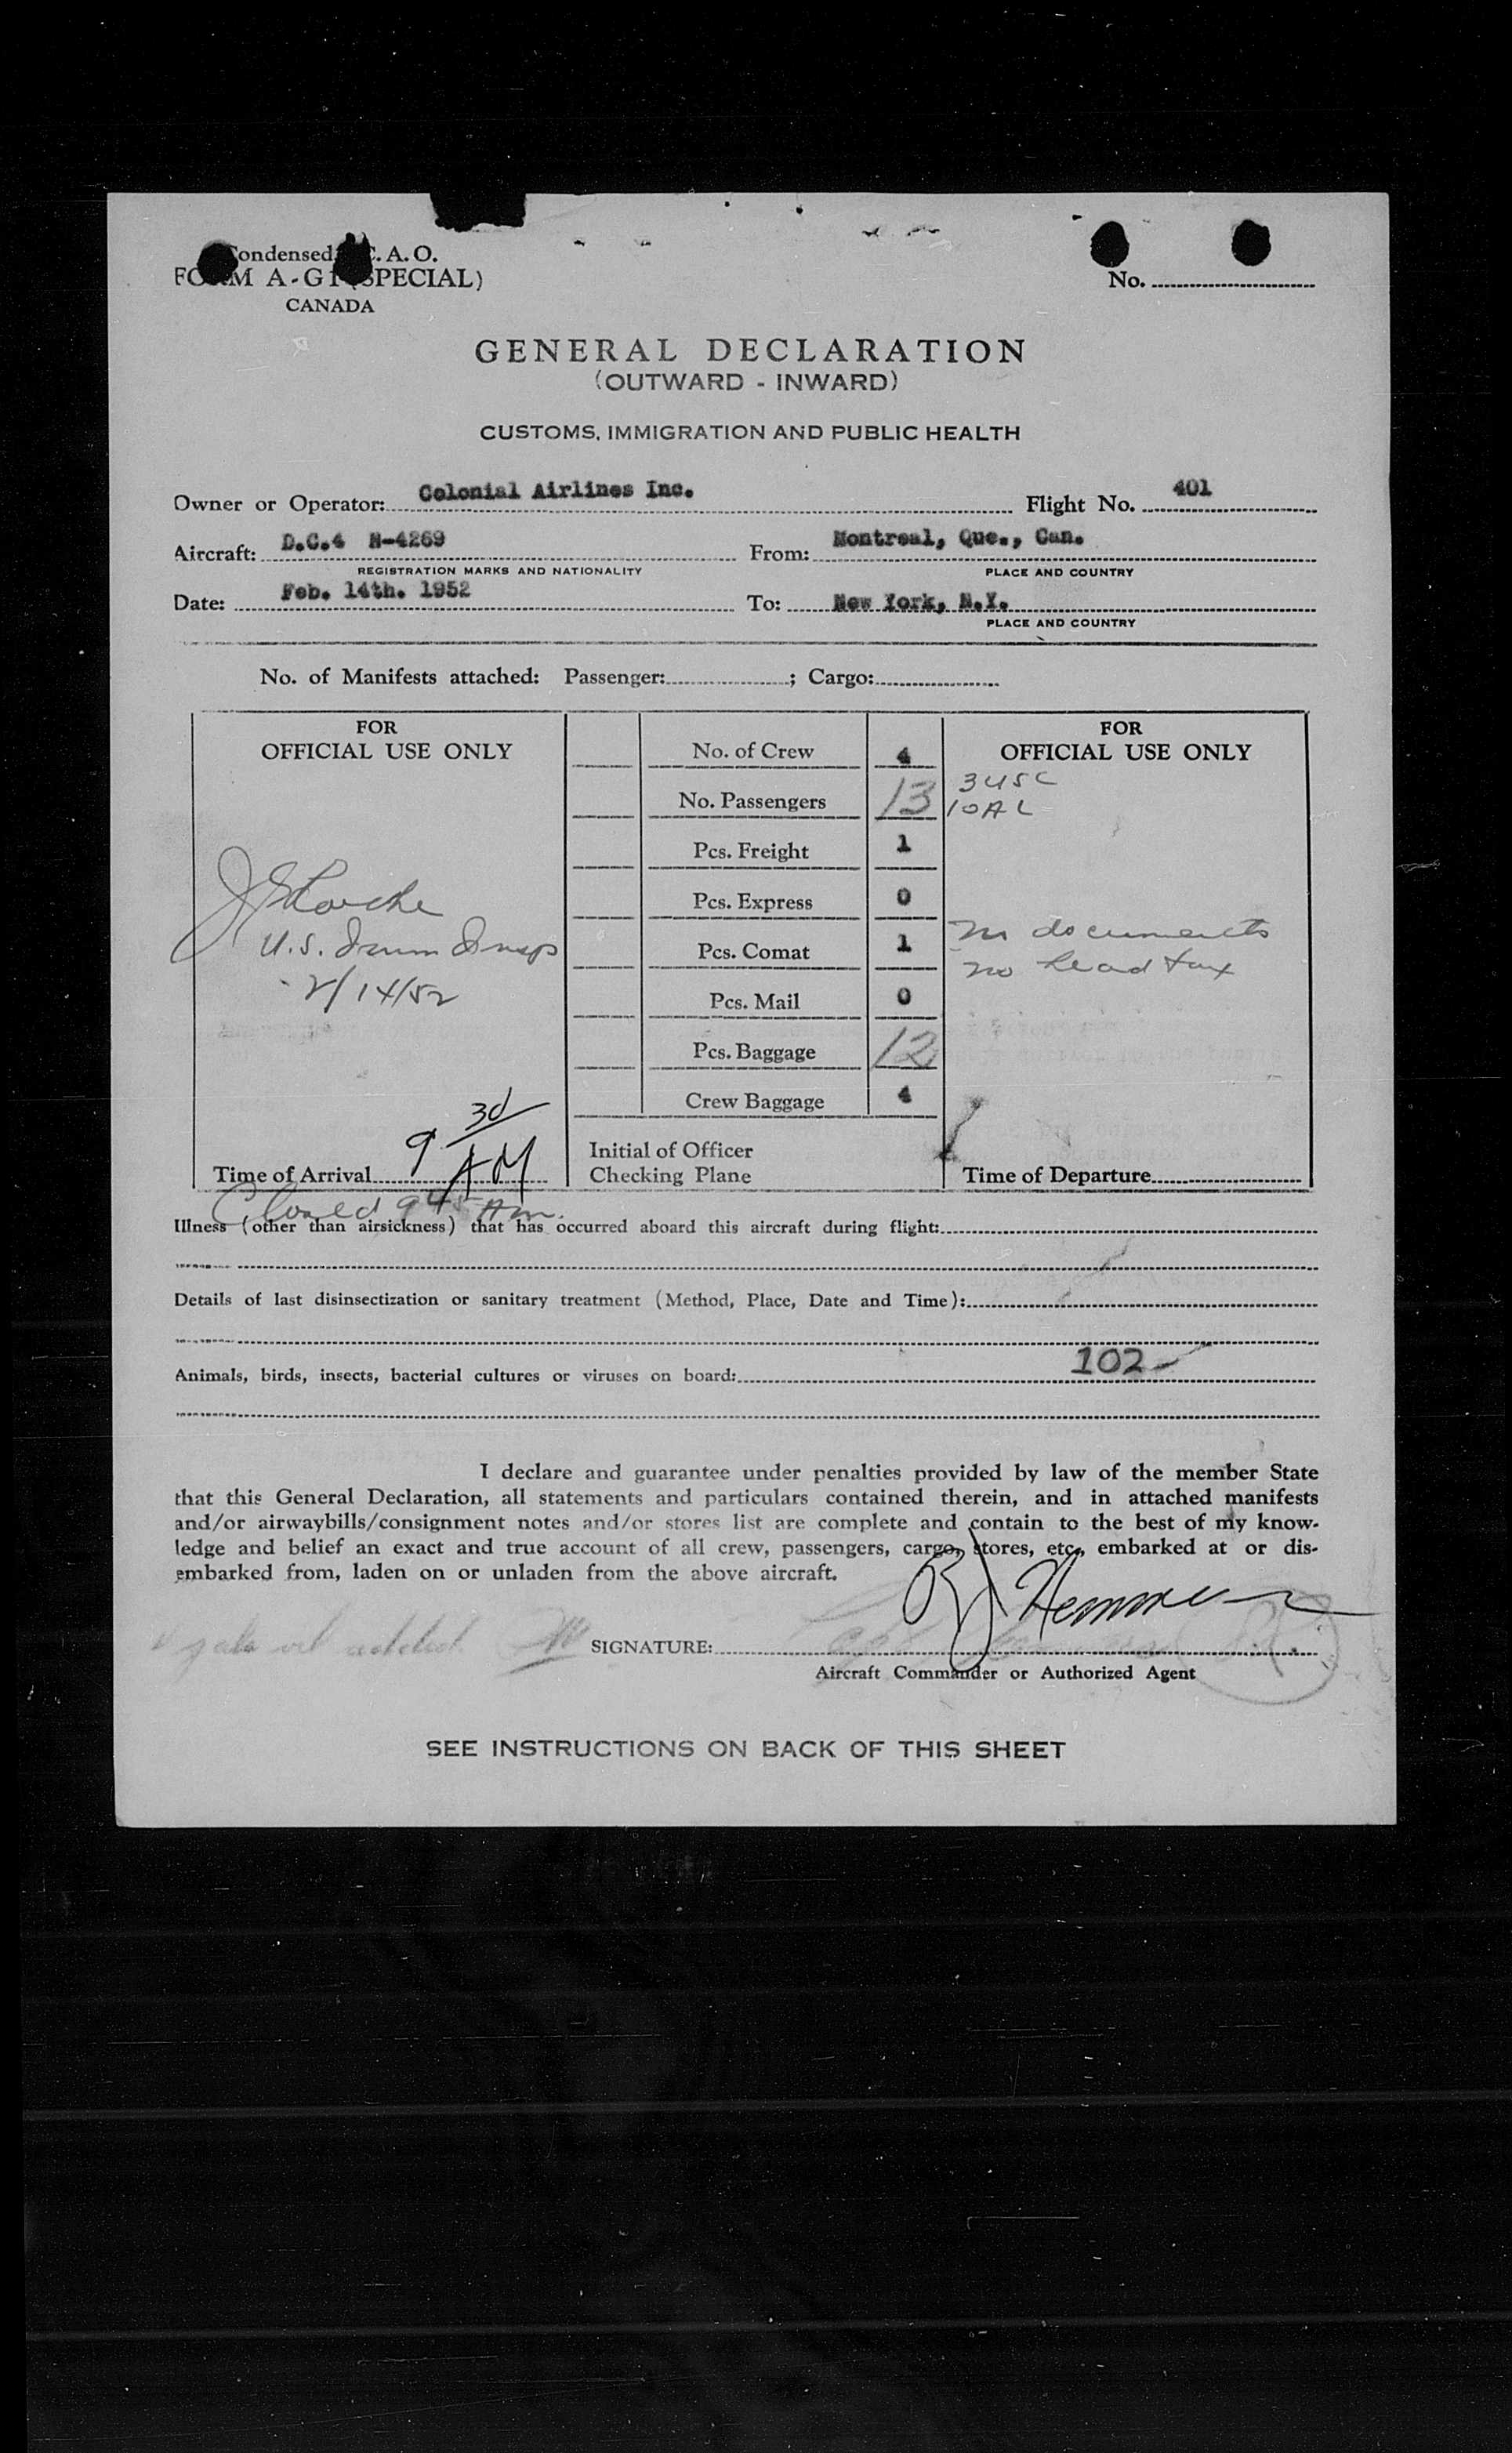 Condensed I.C.A.O.
FORM A-G1 (SPECIAL)
CANADA
No.
GENERAL DECLARATION
(OUTWARD - INWARD)
CUSTOMS, IMMIGRATION AND PUBLIC HEALTH
Owner or Operator: Colonial Airlines Inc. Flight No. 401
Aircraft: D.C.4 N-4269 From: Montreal, Que., Can.
REGISTRATION MARKS AND NATIONALITY PLACE AND COUNTRY
Date: Feb. 14th. 1952 To: New York, N.Y.
PLACE AND COUNTRY
No. of Manifests attached: Passenger: ; Cargo:
FOR
OFFICIAL USE ONLY
U.S.
2/14/52
9 30 AM
Time of Arrival
Closed 9 45 Am.
No. of Crew 4
No. Passengers 13
Pcs. Freight 1
Pcs. Express 0
Pcs. Comat 1
Pcs. Mail 0
Pcs. Baggage 12
Crew Baggage 4
Initial of Officer
Checking Plane
FOR
OFFICIAL USE ONLY
3 USC
10 AL
documents
no head tax
Time of Departure
Illness (other than airsickness) that has occurred aboard this aircraft during flight:
Details of last disinsectization or sanitary treatment (Method, Place, Date and Time):
102
Animals, birds, insects, bacterial cultures or viruses on board:
I declare and guarantee under penalties provided by law of the member State
that this General Declaration, all statements and particulars contained therein, and in attached manifests
and/or airwaybills/consignment notes and/or stores list are complete and contain to the best of my know-
ledge and belief an exact and true account of all crew, passengers, cargo, stores, etc., embarked at or dis-
embarked from, laden on or unladen from the above aircraft.
SIGNATURE:
Aircraft Commander or Authorized Agent
SEE INSTRUCTIONS ON BACK OF THIS SHEET